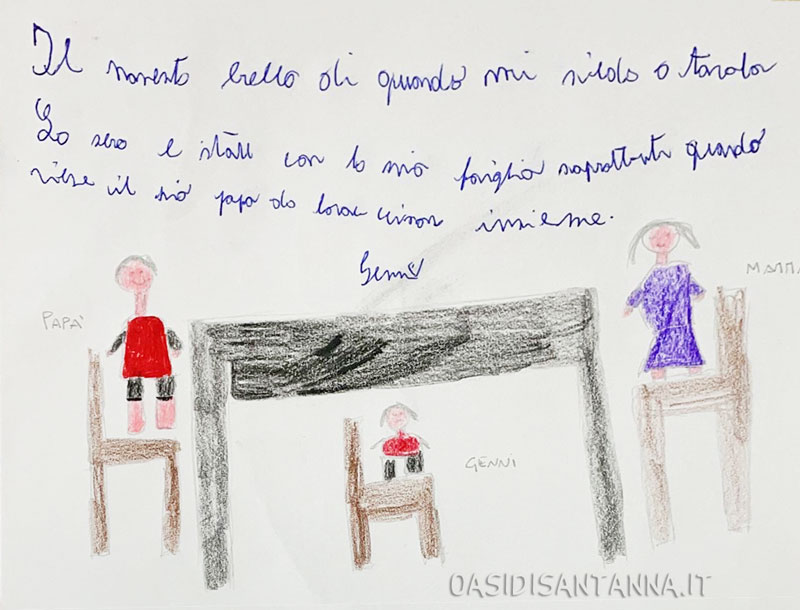 Il momento bello è di quando mi siedo a tavola
La sera e stare con la mia famiglia soprattutto quando
viene il mio papà da lavoro ceniamo insieme.
Genni
PAPA'
MAMMA
GENNI
OASIDISANTANNA.IT